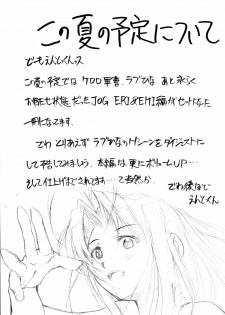 この夏の予定について
どーもえんとくんっス
この夏の予定では ケロロ軍曹、ラブひな あと永らく
状態だった JOG EP1&EM1編がセットになった
一冊になってます。
でわ とりあえず ラブひなのワンシーンを ダイジェストに
して みましょう 本編は更にボリュームUP…
そして仕上げまでされてます…て当然か
でわ後ほど
えんとくん